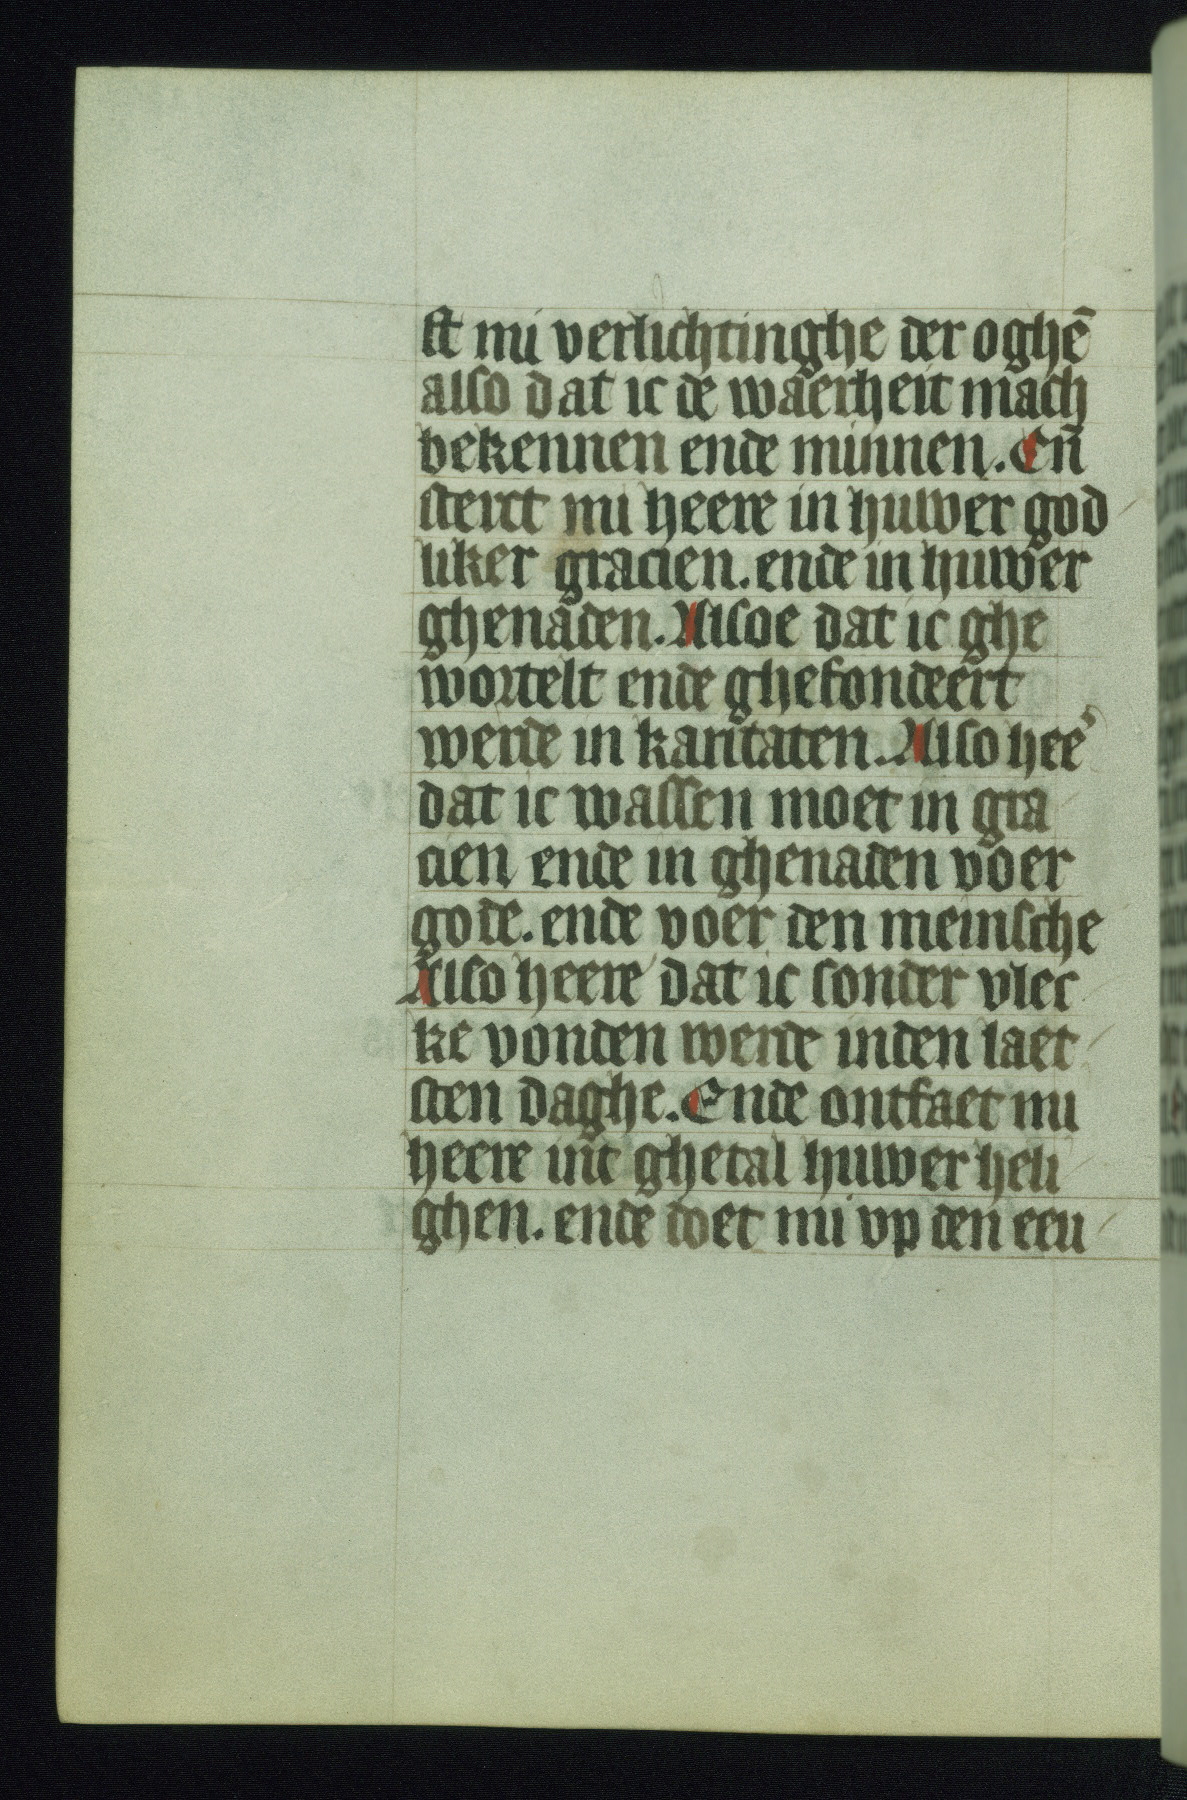 st mi verlichtinghe der oghē
also dat ic de waerheit mach
bekennen ende minnen. En̄
sterct mi heere in huwer god
liker gracien. ende in huwer
ghenaden. Alsoe dat ic ghe
wortelt ende ghefondeert
werde in karitaten. Also hee᷒
dat ic wassen moet in gra
cien ende in ghenaden voer
gode. ende voer den meinsche
Also heere dat ic sonder vlec
ke vonden werde inden laet
sten daghe. Ende ontfaet mi
heere int ghetal huwer heli
ghen. ende doet mi up den eeu